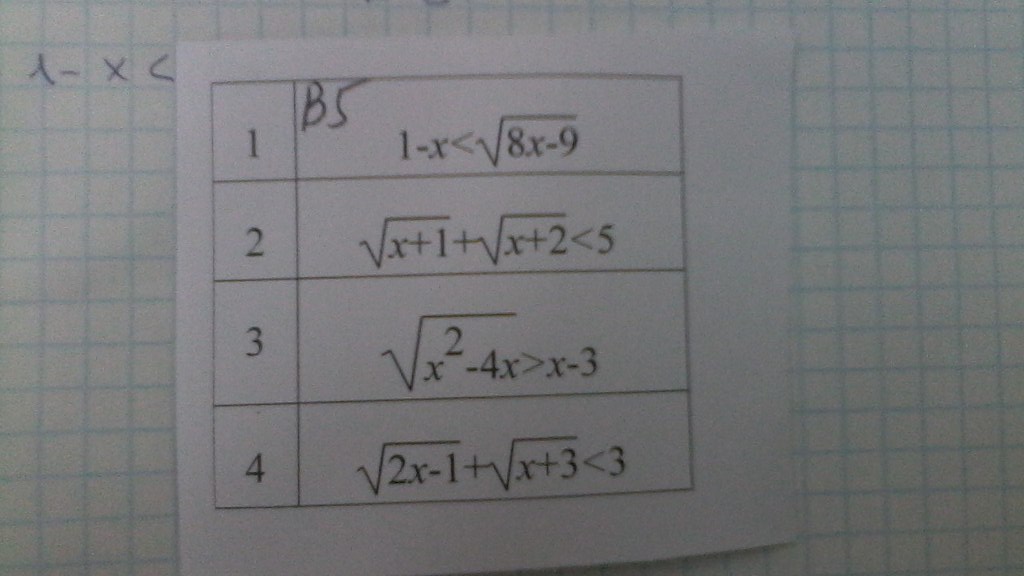 1 - x <
B5
1 1-x<√8x-9
2 √x+1+√x+2<5
3 √x²-4x>x-3
4 √2x-1+√x+3<3